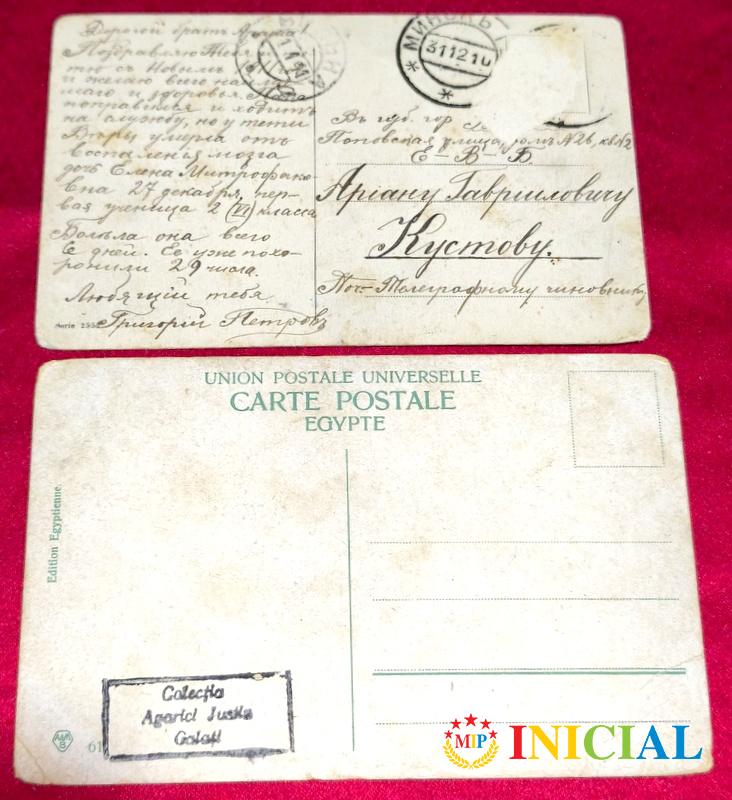 Дорогой братъ Аріанъ!
Поздравляю Тебя и
тю съ Новымъ
и желаю всего наил
шаго и здоровья.
поправился и ходитъ
на службу, но у тети
Вѣры умерла отъ
воспаленья мозга
дочь Елена Митрофано
вна 27 декабря, пер-
вая ученица 2 (VI) класса
Болѣла она всего
6 дней. Ее уже похо-
ронили 29 числа.
Любящій тебя
Григорій Петровъ
Serie
МИНСКЪ
31 12 10
Въ губ. гор
Поповская улица, домъ N 26, кв N 2
Е - В - Б.
Аріану Гавриловичу
Кустову.
Поч-Телеграфному чиновнику
UNION POSTALE UNIVERSELLE
CARTE POSTALE
EGYPTE
Edition Egyptienne
Colecția
Agarici Justin
Galați
61
MIP INICIAL